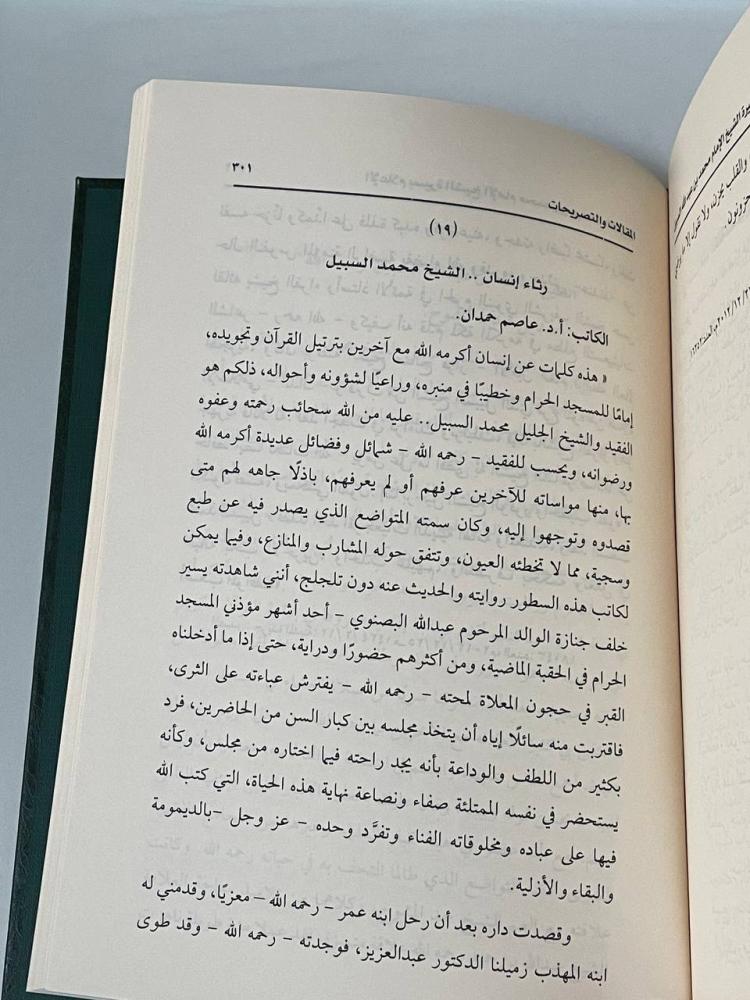 المقالات والتصريحات ٣٠١
(١٩)
رثاء إنسان .. الشيخ محمد السبيل
الكاتب: أ.د. عاصم حمدان.
« هذه كلمات عن إنسان أكرمه الله مع آخرين بترتيل القرآن وتجويده،
إمامًا للمسجد الحرام وخطيبًا في منبره، وراعيًا لشؤونه وأحواله، ذلكم هو
الفقيد والشيخ الجليل محمد السبيل.. عليه من الله سحائب رحمته وعفوه
ورضوانه، ويحسب للفقيد – رحمه الله – شمائل وفضائل عديدة أكرمه الله
بها، منها مواساته للآخرين عرفهم أو لم يعرفهم، باذلًا جاهه لهم متى
قصدوه وتوجهوا إليه، وكان سمته المتواضع الذي يصدر فيه عن طبع
وسجية، مما لا تخطئه العيون، وتتفق حوله المشارب والمنازع، وفيما يمكن
لكاتب هذه السطور روايته والحديث عنه دون تلجلج، أنني شاهدته يسير
خلف جنازة الوالد المرحوم عبدالله البصنوي – أحد أشهر مؤذني المسجد
الحرام في الحقبة الماضية، ومن أكثرهم حضورًا ودراية، حتى إذا ما أدخلناه
القبر في حجون المعلاة لمحته – رحمه الله – يفترش عباءته على الثرى،
فاقتربت منه سائلًا إياه أن يتخذ مجلسه بين كبار السن من الحاضرين، فرد
بكثير من اللطف والوداعة بأنه يجد راحته فيما اختاره من مجلس، وكأنه
يستحضر في نفسه الممتلئة صفاء ونصاعة نهاية هذه الحياة، التي كتب الله
فيها على عباده ومخلوقاته الفناء وتفرَّد وحده – عز وجل –بالديمومة
والبقاء والأزلية.
وقصدت داره بعد أن رحل ابنه عمر – رحمه الله – معزيًا، وقدمني له
ابنه المهذب زميلنا الدكتور عبدالعزيز، فوجدته – رحمه الله – وقد طوى